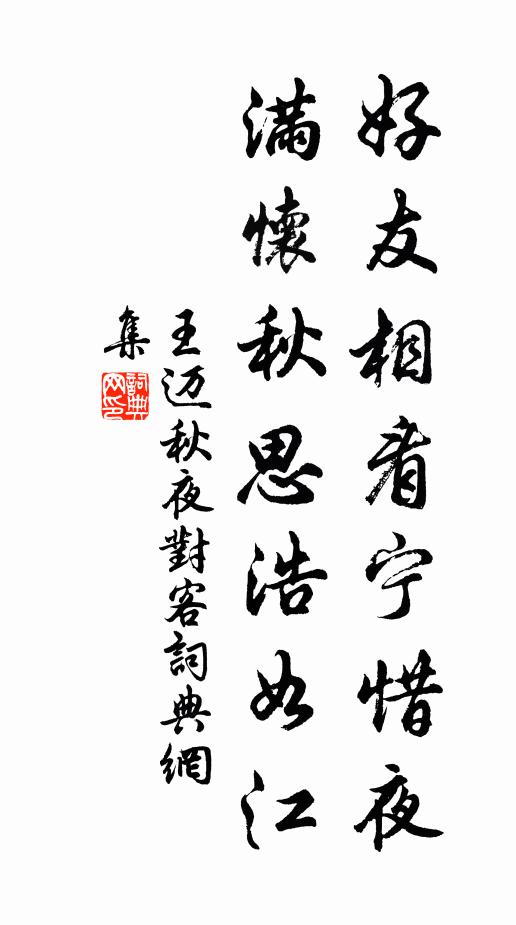 好友相看宁惜夜
滿懷秋思浩如江
王迈秋夜對客詞典網
集
詞典网印